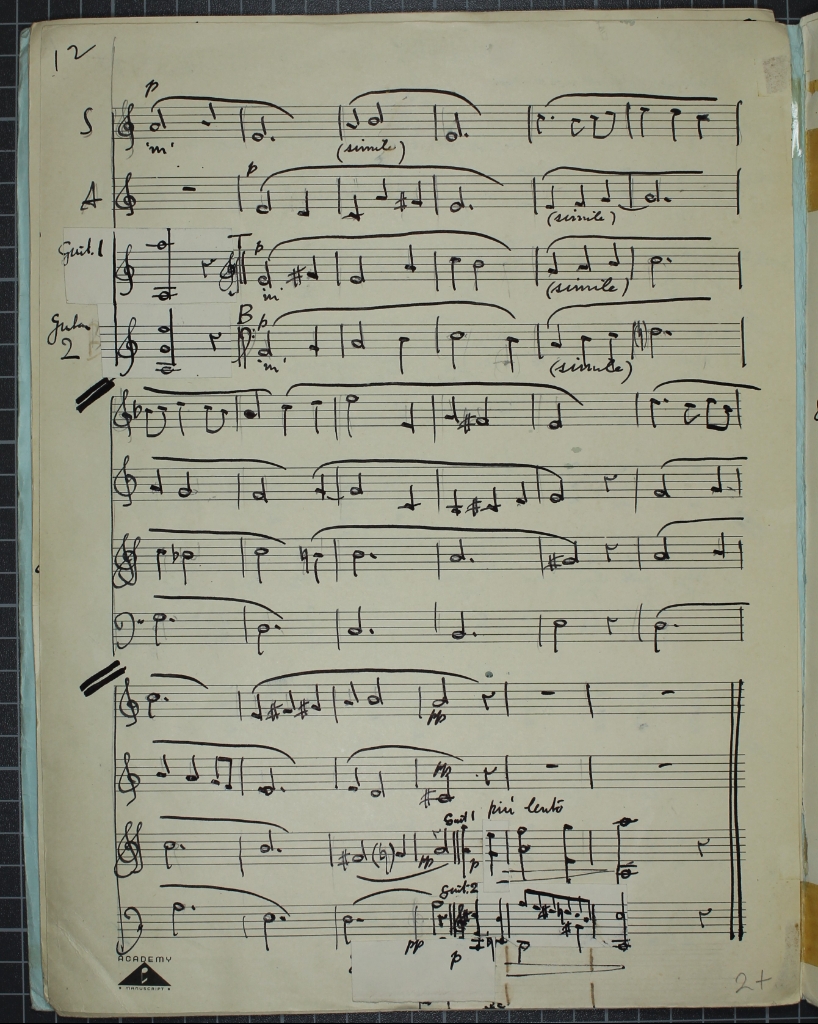 12
p
S
'm'
(simile)
p
A
(simile)
Guit. 1
T
p
'm'
(simile)
2
B
p
'm'
(simile)
pp
pp
Guit 1
più lento
pp
p
Guit. 2
pp
p
p
ACADEMY
MANUSCRIPT
2+